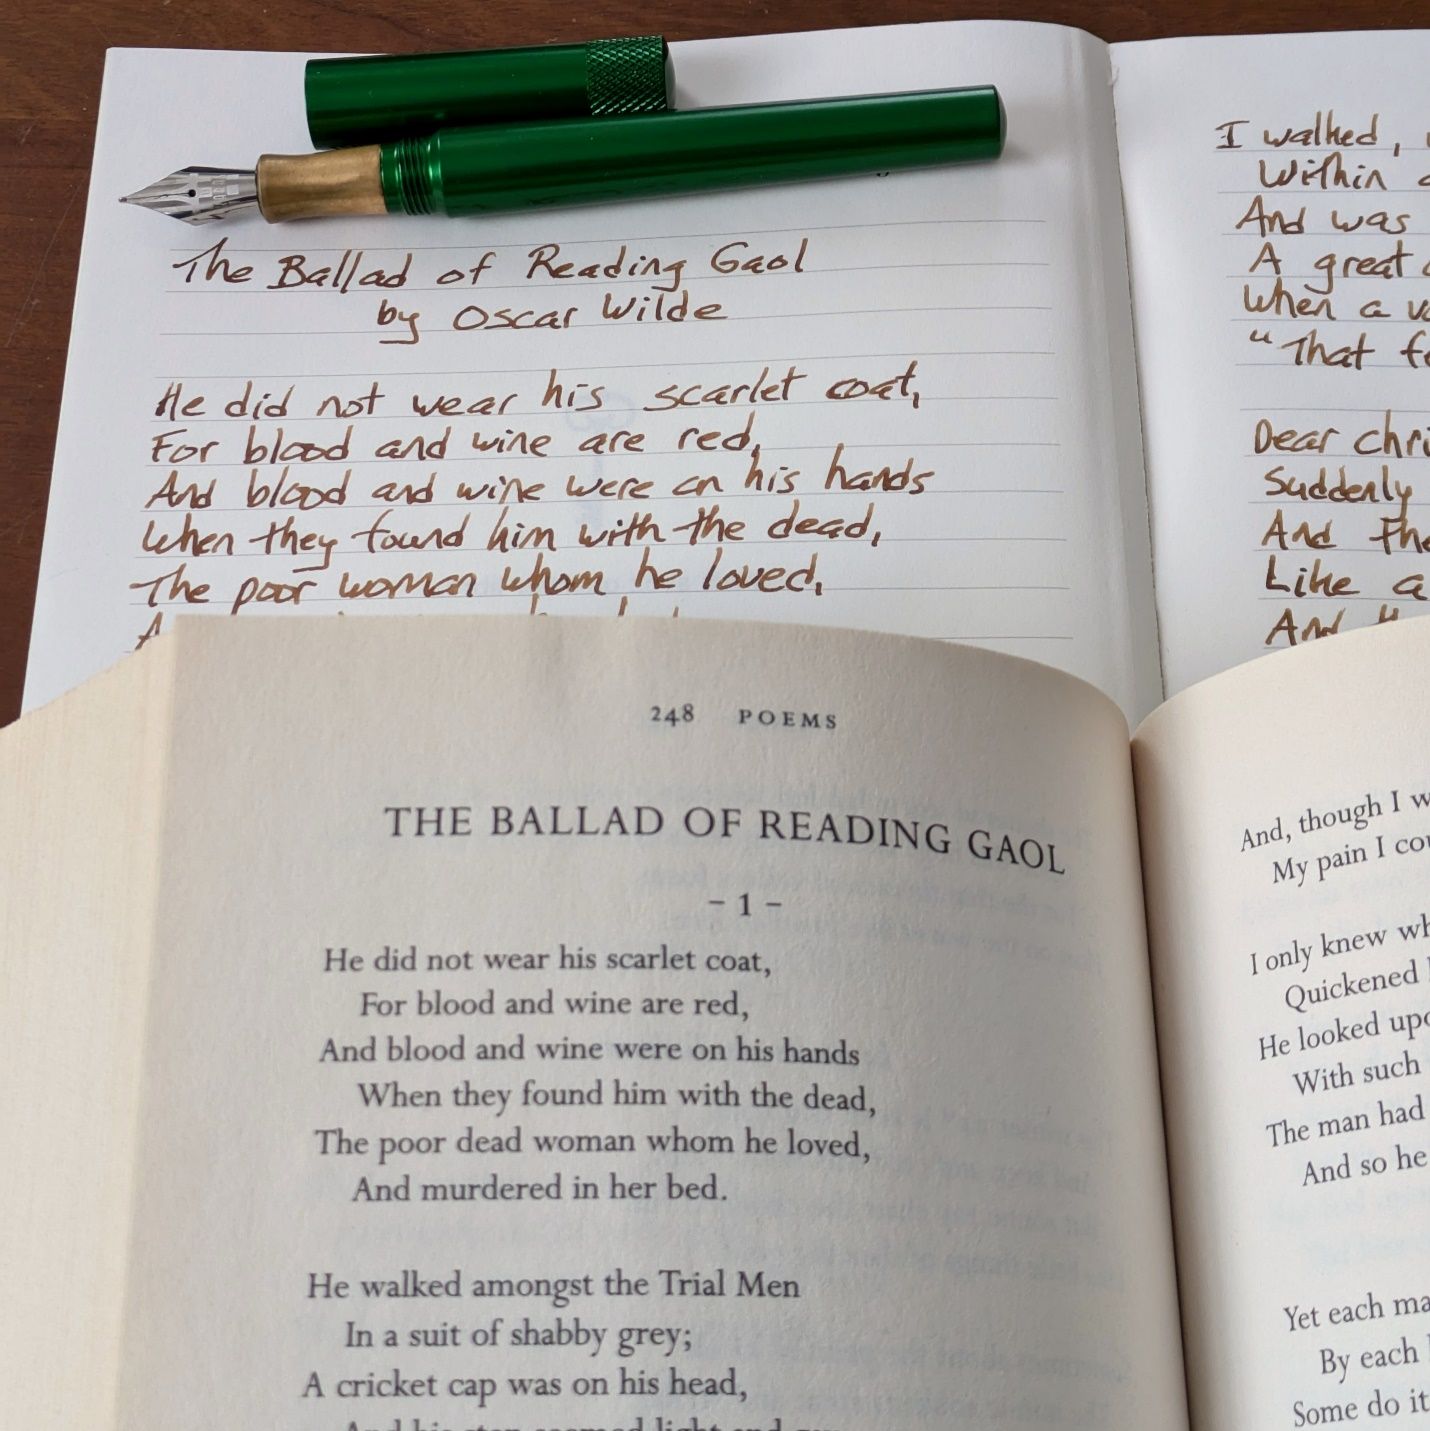 The Ballad of Reading Gaol
by Oscar Wilde
He did not wear his scarlet coat,
For blood and wine are red,
And blood and wine were on his hands
When they found him with the dead,
The poor woman whom he loved,
I walked,
Within
And was
A great
When a
"That
Dear
Suddenly
And
Like a
And
248 POEMS
THE BALLAD OF READING GAOL
– 1 –
He did not wear his scarlet coat,
For blood and wine are red,
And blood and wine were on his hands
When they found him with the dead,
The poor dead woman whom he loved,
And murdered in her bed.
He walked amongst the Trial Men
In a suit of shabby grey;
A cricket cap was on his head,
And, though I
My pain I
I only knew
Quickened
He looked
With such
The man had
And so he
Yet each
By each
Some do it